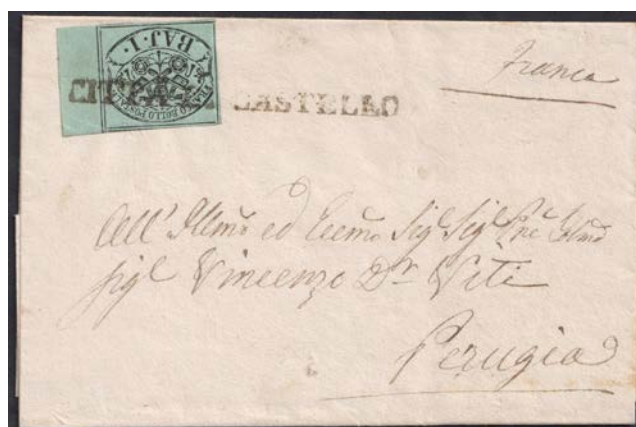 BAJ. 1.
FRANCO BOLLO POSTALE
CITTA DI CASTELLO
Franca
All' Illmo ed Eccmo Sigr Sigr Pne Colmo
Sigr Vincenzo Dr Viti
Perugia